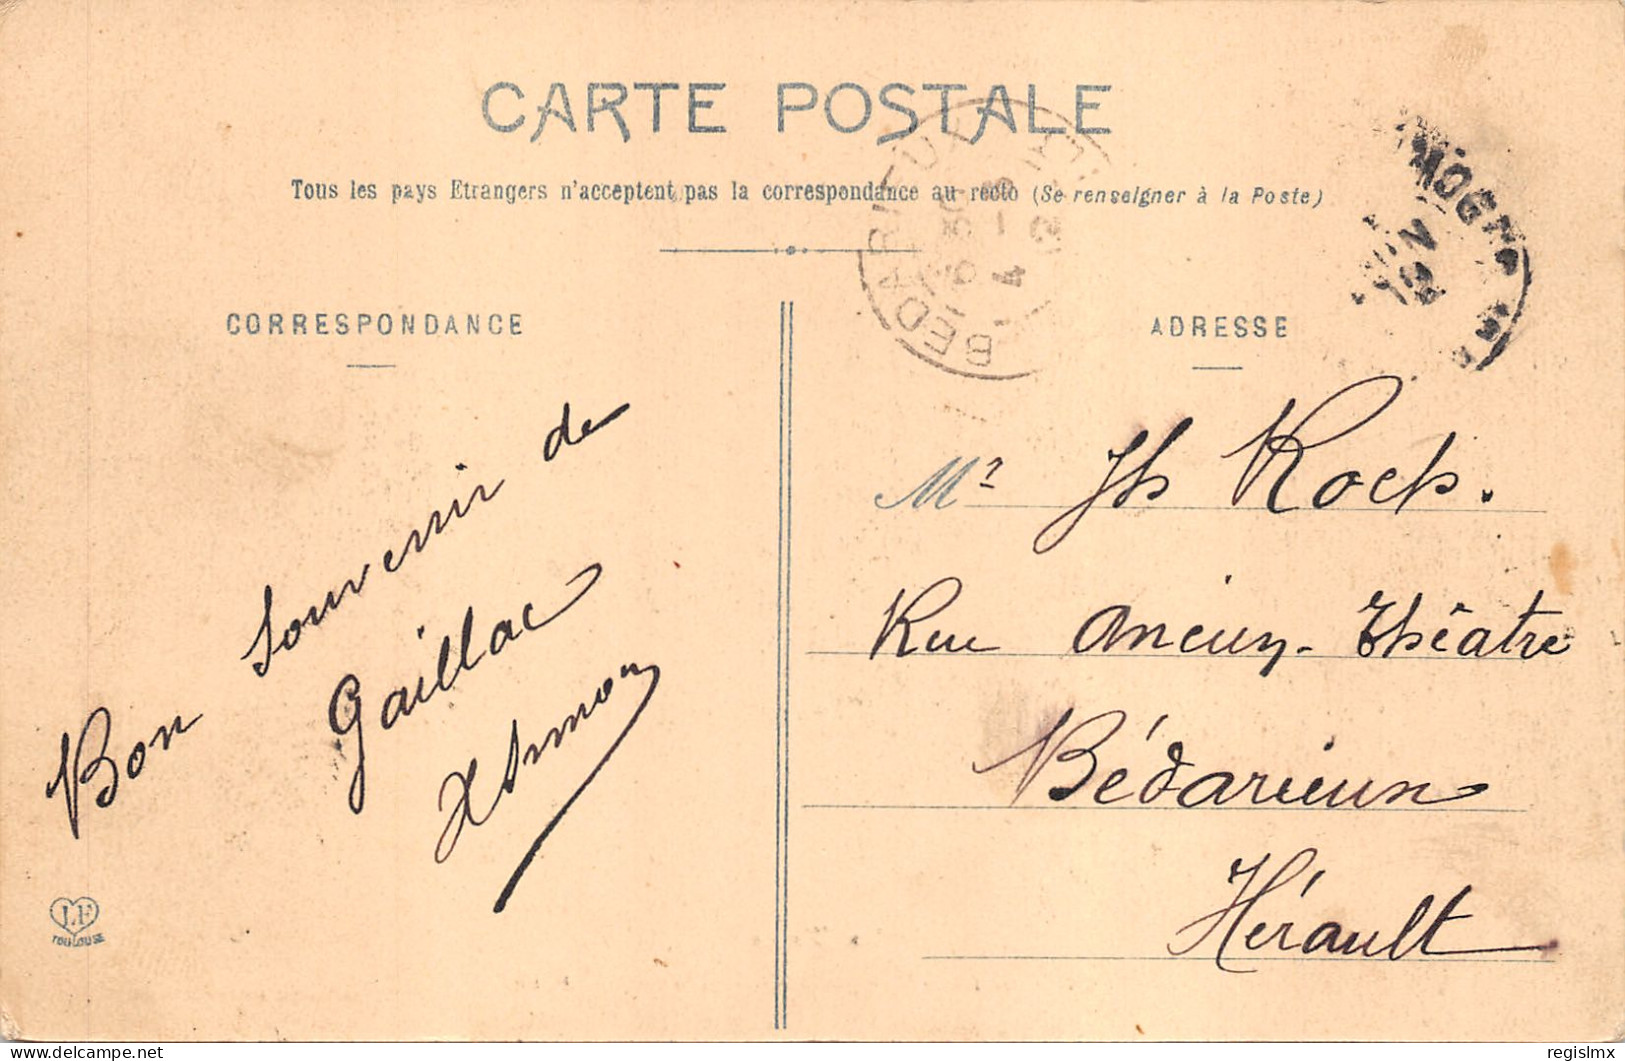 CARTE POSTALE
Tous les pays Etrangers n'acceptent pas la correspondance au recto (Se renseigner à la Poste)
CORRESPONDANCE
Bon Souvenir de
Gaillac
LF
TOULOUSE
ADRESSE
BEDARIEUX
Mr Jh Roch.
Rue Ancien-Théâtre
Bédarieux
Hérault
www.delcampe.net
regislmx